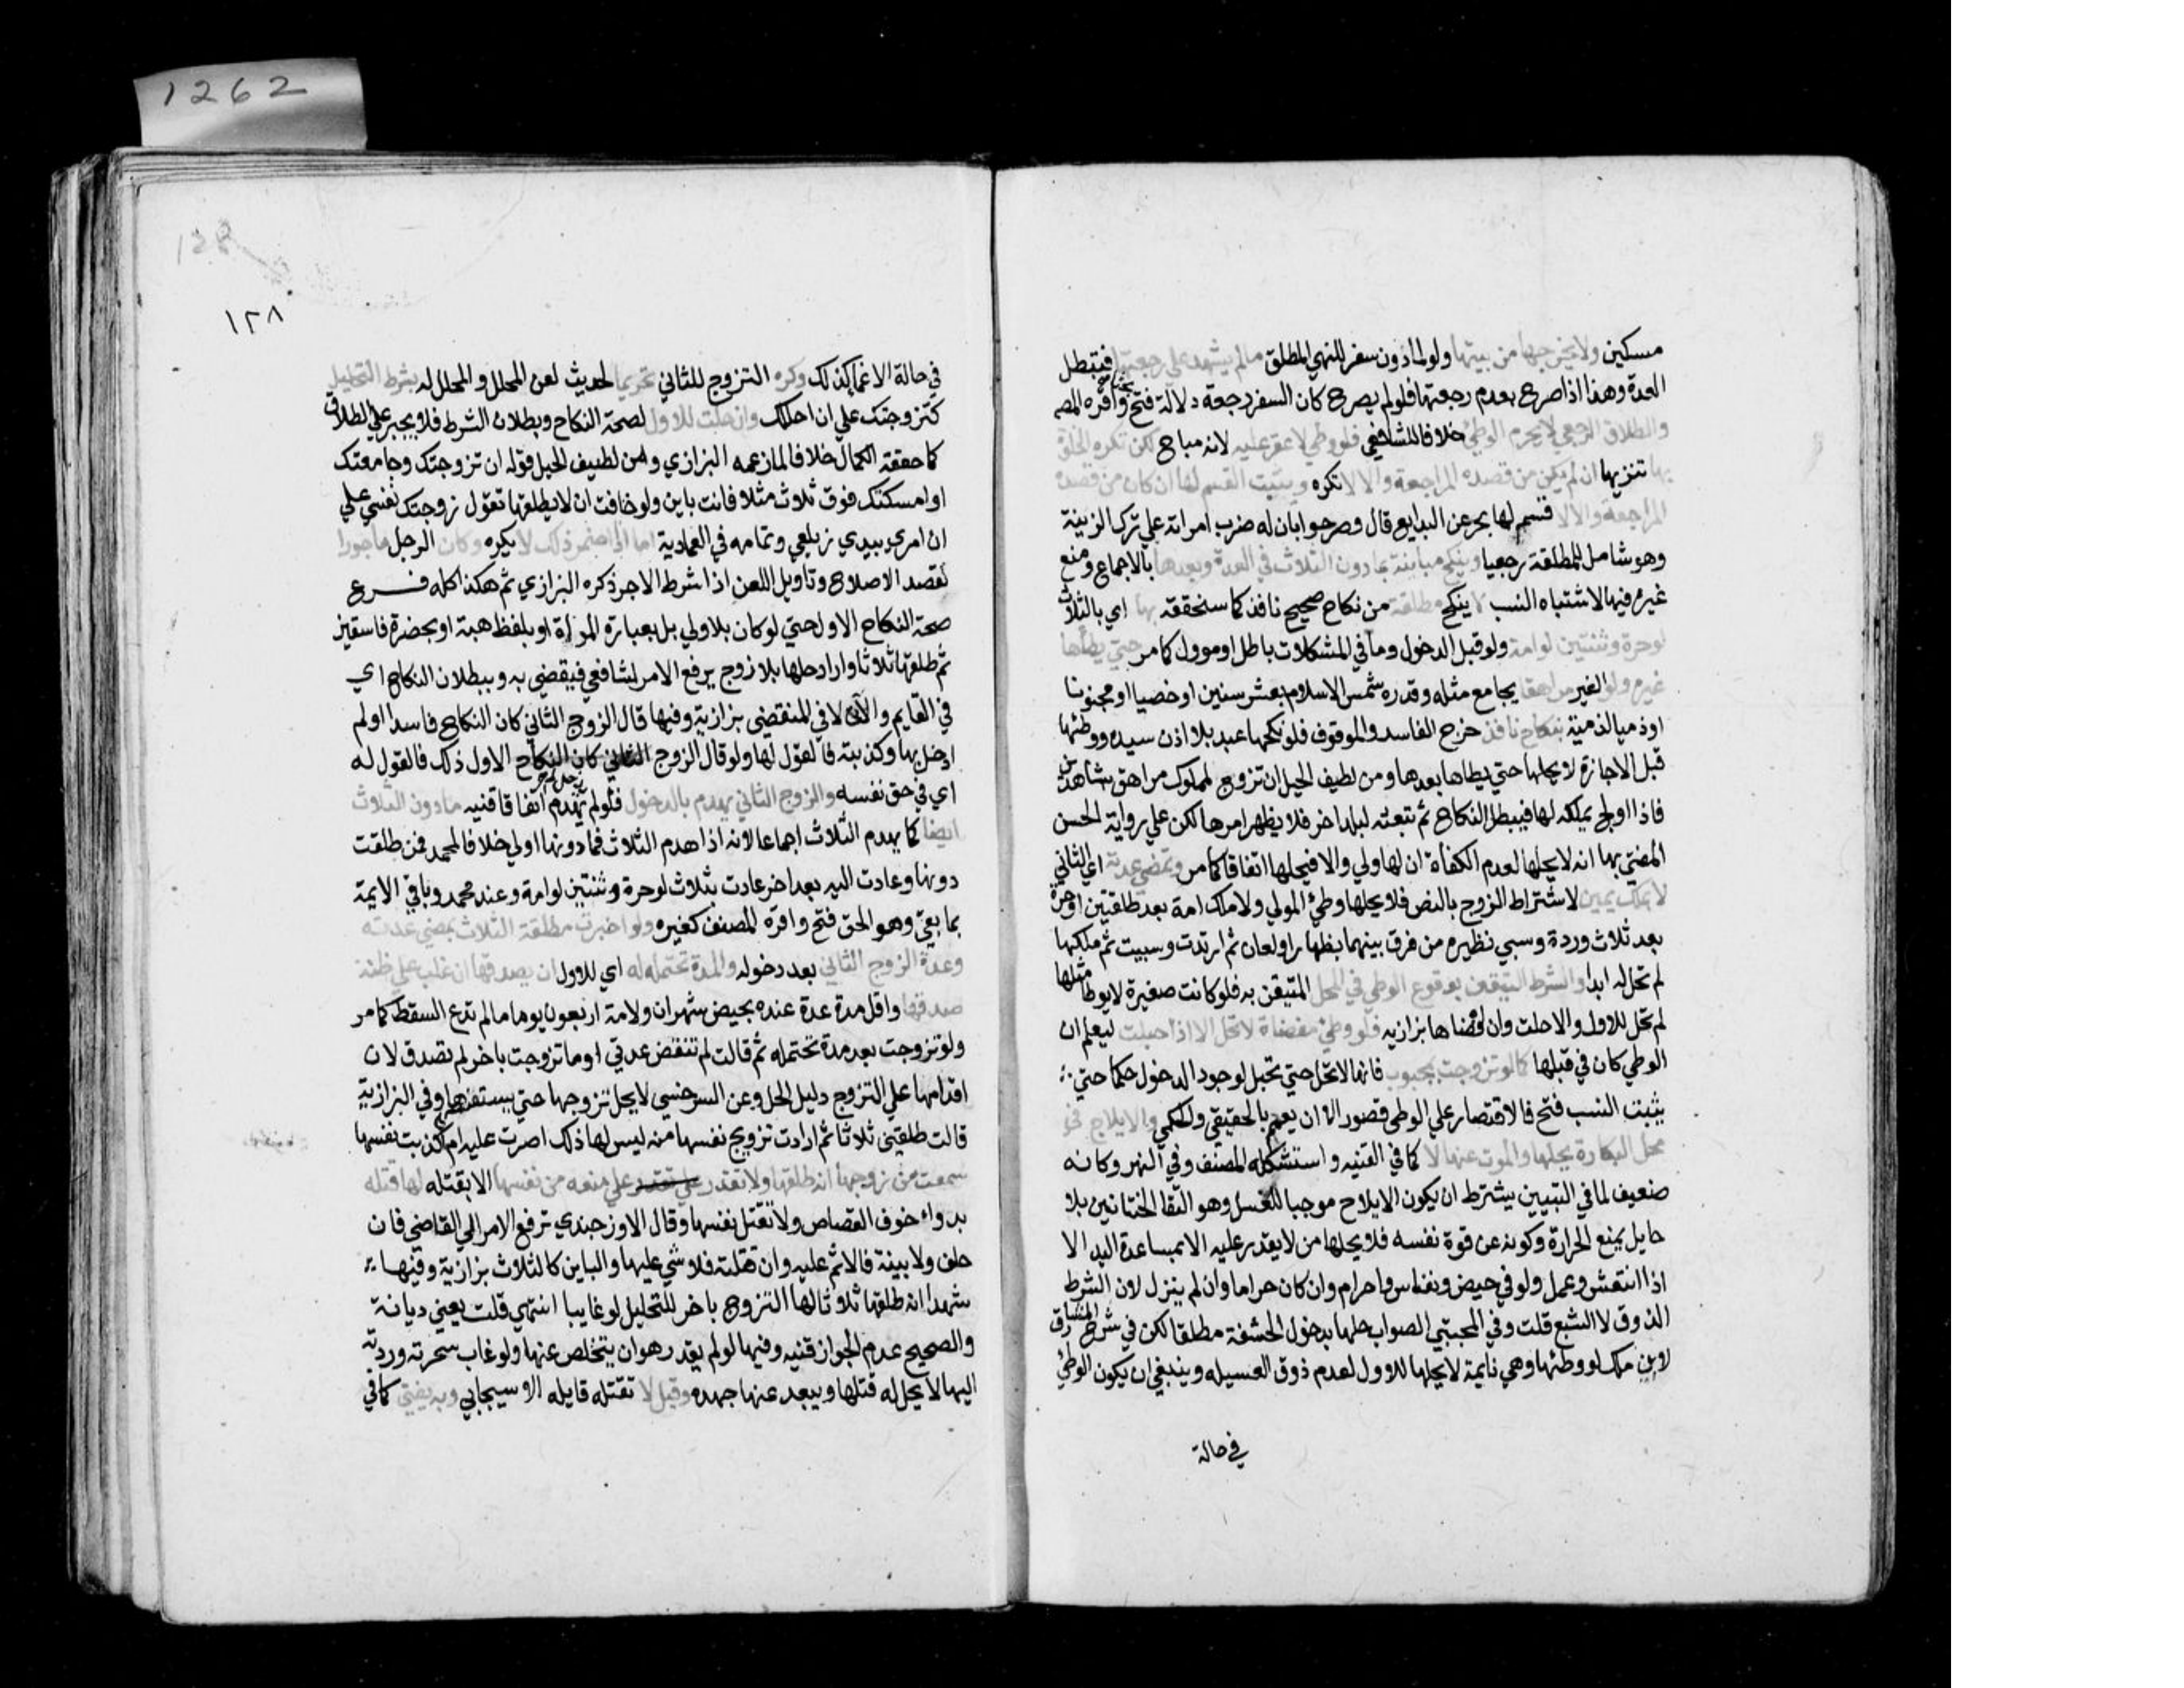 1262
مسكين ولا يخرجها من بيتها ولو لما دون سفر للنهي المطلق مالم يشهد علي رجعتها فتبطل
العدة وهذا اذا صرح بعدم رجعتها فلو لم يصرح كان السفر رجعة دلالة فتح بحثا واقره المص
والطلاق الرجعي لا يحرم الوطئ خلافا للشافعي فلو وطي لا عقر عليه لانه مباح لكن تكره الخلوة
بها تنزيها ان لم يكن من قصده المراجعة والا لا تكره ويثبت القسم لها ان كان من قصده
المراجعة والا لا قسم لها بحر عن البدايع قال وصرحوا بان له ضرب امراته علي ترك الزينة
وهو شامل للمطلقة رجعيا وينكح مبانته بما دون الثلاث في العدة وبعدها بالاجماع ومنع
غيره فيها لاشتباه النسب لا ينكح مطلقة من نكاح صحيح نافذ كما سنحققه بها اي بالثلاث
لو حرة وثنتين لو امة ولو قبل الدخول وما في المشكلات باطل او موول كما مر حتي يطأها
غيره ولو الغير مراهقا يجامع مثله وقدره شمس الاسلام بعشر سنين او خصيا او مجنونا
او ذميا لذمية بنكاح نافذ خرج الفاسد والموقوف فلو نكحها عبد بلا اذن سيده ووطئها
قبل الاجازة لا يحلها حتي يطاها بعدها ومن لطيف الحيل ان تزوج لمملوك مراهق بشاهدين
فاذا اولج يملكه لها فيبطل النكاح ثم تبعثه لبلد اخر فلا يظهر امرها لكن علي رواية الحسن
المفتي بها انه لا يحلها لعدم الكفأة ان لها ولي والا فيحلها اتفاقا كما مر وتمضي عدته اي الثاني
لا بملك يمين لاشتراط الزوج بالنص فلا يحلها وطئ المولي ولا ملك امة بعد طلقتين او حرة
بعد ثلاث وردة وسبي نظيره من فرق بينهما بظهار او لعان ثم ارتدت وسبيت ثم ملكها
لم تحل له ابدا والشرط التيقن بوقوع الوطي في المحل المتيقن به فلو كانت صغيرة لا يوطا مثلها
لم تحل للاول والا حلت وان افضاها بزازيه فلو وطئ مفضاة لا تحل الا اذا حبلت ليعلم ان
الوطي كان في قبلها كما لو تزوجت بمجبوب فانها لا تحل حتي تحبل لوجود الدخول حكما حتي
يثبت النسب فتح فالاقتصار علي الوطي قصور الا ان يعمم بالحقيقي والحكمي والايلاج في
محل البكارة يحلها والموت عنها لا كما في القنيه واستشكله المصنف وفي النهر وكانه
ضعيف لما في التبيين يشترط ان يكون الايلاج موجبا للغسل وهو التقا الختانين بلا
حايل يمنع الحرارة وكونه عن قوة نفسه فلا يحلها من لا يقدر عليه الا بمساعدة اليد الا
اذا انتعش وعمل ولو في حيض ونفاس واحرام وان كان حراما وان لم ينزل لان الشرط
الذوق لا الشبع قلت وفي المجتبي الصواب حلها بدخول الحشفة مطلقا لكن في شرح المشارق
لابن ملك لو وطئها وهي نايمة لا يحلها للاول لعدم ذوق العسيله وينبغي ان يكون الوطئ
في حالة
١٢٨
في حالة الاغما كذلك وكره التزوج للثاني تحريما لحديث لعن المحلل والمحلل له بشرط التحليل
كتزوجتك علي ان احللك وان حلت للاول لصحة النكاح وبطلان الشرط فلا يجبر علي الطلاق
كما حققه الكمال خلافا لما زعمه البزازي ومن لطيف الحيل قوله ان تزوجتك وجامعتك
او امسكتك فوق ثلاث مثلا فانت باين ولو خافت ان لا يطلقها تقول زوجتك نفسي علي
ان امري بيدي زيلعي وتمامه في العمادية اما اذا اضمر ذلك لا يكره وكان الرجل ماجورا
لقصد الاصلاح وتاويل اللعن اذا شرط الاجر ذكره البزازي ثم هكذا كله فرع
صحة النكاح الاول حتي لو كان بلا ولي بل بعبارة المراة او بلفظ هبة او بحضرة فاسقين
ثم طلقها ثلاثا واراد حلها بلا زوج يرفع الامر لشافعي فيقضي به وببطلان النكاح اي
في القايم والآن لا في المنقضي بزازية وفيها قال الزوج الثاني كان النكاح فاسدا او لم
ادخل بها وكذبته فالقول لها ولو قال الزوج الثاني كان النكاح الاول ذلك فالقول له
اي في حق نفسه والزوج الثاني يهدم بالدخول فلو لم يدخل لم يهدم اتفاقا قنيه مادون الثلاث
ايضا كما يهدم الثلاث اجماعا لانه اذا هدم الثلاث فما دونها اولي خلافا لمحمد فمن طلقت
دونها وعادت اليه بعد اخر عادت بثلاث لو حرة وثنتين لو امة وعند محمد وباقي الايمة
بما بقي وهو الحق فتح واقره المصنف كغيره ولو اخبرت مطلقة الثلاث بمضي عدته
وعدة الزوج الثاني بعد دخوله والمدة تحتمله له اي للاول ان يصدقها ان غلب علي ظنه
صدقها واقل مدة عدة عنده بحيض شهران ولامة اربعون يوما مالم تدع السقط كما مر
ولو تزوجت بعد مدة تحتمله ثم قالت لم تنقض عدتي او ما تزوجت باخر لم تصدق لان
اقدامها علي التزوج دليل الحل وعن السرخسي لا يحل تزوجها حتي يستفسرها وفي البزازية
قالت طلقني ثلاثا ثم ارادت تزويج نفسها منه ليس لها ذلك اصرت عليه ام كذبت نفسها
سمعت من زوجها انه طلقها ولا تقدر علي منعه من نفسها الا بقتله لها قتله
بدواء خوف القصاص ولا تقتل نفسها وقال الاوزجندي ترفع الامر الي القاضي فان
حلف ولا بينة فالاثم عليه وان قتلته فلا شي عليها والباين كالثلاث بزازية وفيها
شهدا انه طلقها ثلاثا لها التزوج باخر للتحليل لو غايبا انتهي قلت يعني ديانة
والصحيح عدم الجواز قنيه وفيها لو لم يقدر هو ان يتخلص عنها ولو غاب سحرته وردته
اليها لا يحل له قتلها ويبعد عنها جهده وقيل لا تقتله قايله الاسبيجابي وبه يفتي كما في